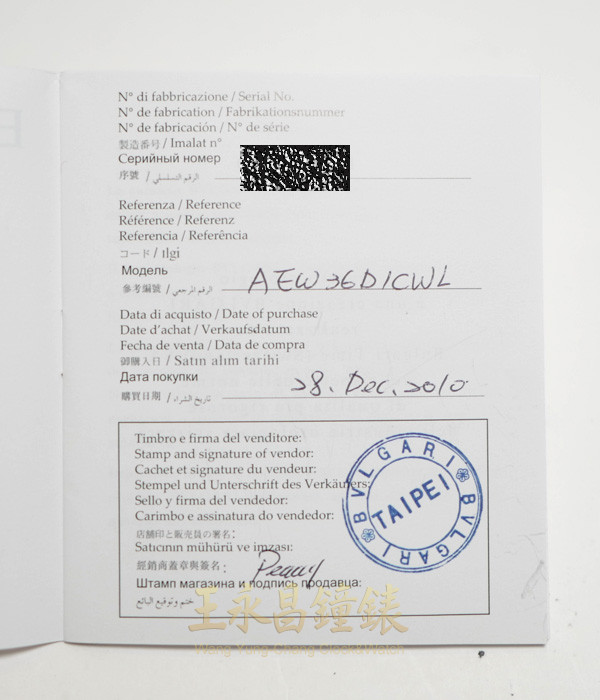 N° di fabbricazione / Serial No.
N° de fabrication / Fabrikationsnummer
N° de fabricación / N° de série
製造番号 / Imalat n°
Серийный номер
序號 / الرقم التسلسلي
Referenza / Reference
Référence / Referenz
Referencia / Referência
コード / Ilgi
Модель
參考編號 / الرقم المرجعي AEW36D1CWL
Data di acquisto / Date of purchase
Date d'achat / Verkaufsdatum
Fecha de venta / Data de compra
御購入日 / Satın alım tarihi
Дата покупки
購買日期 / تاريخ الشراء 28. Dec. 2010
Timbro e firma del venditore:
Stamp and signature of vendor:
Cachet et signature du vendeur:
Stempel und Unterschrift des Verkäufers:
Sello y firma del vendedor:
Carimbo e assinatura do vendedor:
店舗印と販売員の署名:
Satıcının mühürü ve imzası:
經銷商蓋章與簽名: Peggy
Штамп магазина и подпись продавца:
ختم وتوقيع البائع
BVLGARI BVLGARI
TAIPEI
王永昌鐘錶
Wang Yung Chang Clock&Watch